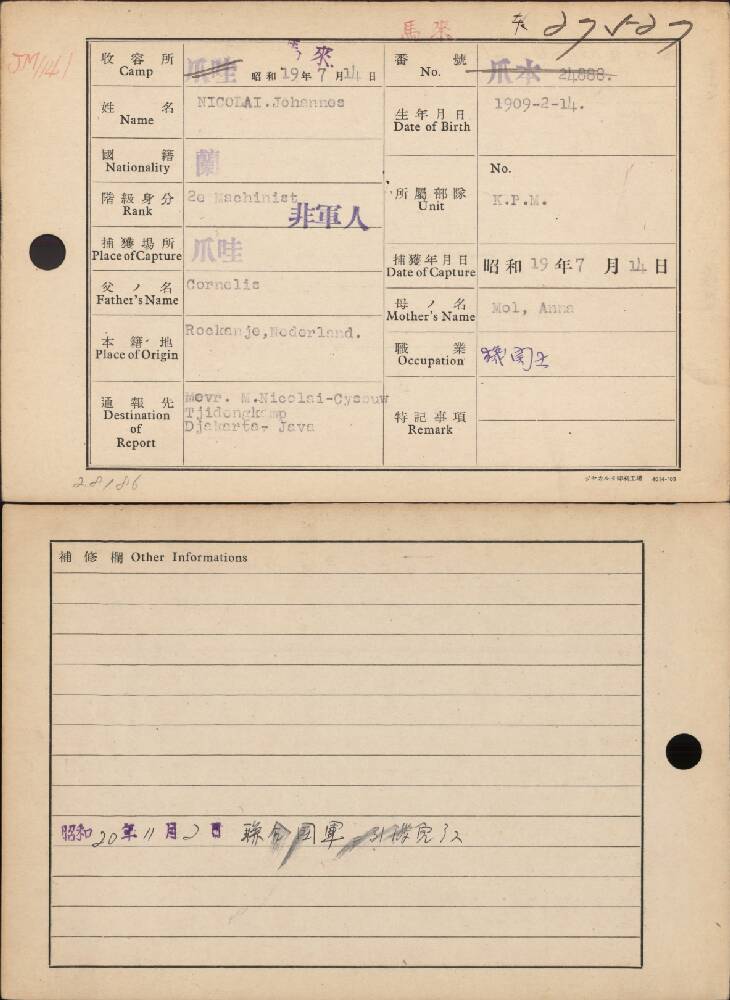 馬來
27527
JM/141
收容所 Camp
爪哇 馬來 昭和19年7月14日
番號 No.
爪本 24888.
姓名 Name
NICOLAI.Johannes
生年月日 Date of Birth
1909-2-14.
國籍 Nationality
蘭
階級身分 Rank
2e Machinist
非軍人
所屬部隊 Unit
No.
K.P.M.
捕獲場所 Place of Capture
爪哇
捕獲年月日 Date of Capture
昭和19年7月14日
父ノ名 Father's Name
Cornelis
母ノ名 Mother's Name
Mol, Anna
本籍地 Place of Origin
Rockanje,Nederland.
職業 Occupation
機関士
通報先 Destination of Report
Mevr. M.Nicolai-Cysouw
Tjidengkamp
Djakarta- Java
特記事項 Remark
28186
ジヤカルタ印刷工場
補修欄 Other Informations
昭和20年11月2日 聯合國軍